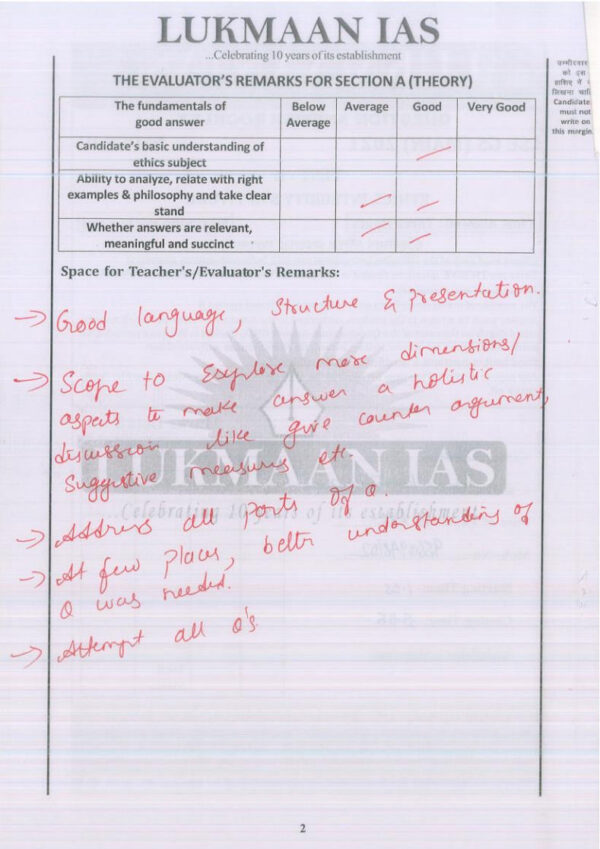 LUKMAAN IAS
...Celebrating 10 years of its establishment
THE EVALUATOR'S REMARKS FOR SECTION A (THEORY)
The fundamentals of good answer | Below Average | Average | Good | Very Good
Candidate's basic understanding of ethics subject
Ability to analyze, relate with right examples & philosophy and take clear stand
Whether answers are relevant, meaningful and succinct
Space for Teacher's/Evaluator's Remarks:
→ Good language, structure & presentation.
→ Scope to explore more dimensions/
aspects to make answer a holistic
discussion like give counter argument,
Suggestive measures etc.
→ Address all parts of Q.
→ At few places, better understanding of
Q was needed.
→ Attempt all Q's
LUKMAAN IAS
...Celebrating 10 years of its establishment
उम्मीदवार
को इस
हाशिए में
लिखना चाहि
Candidate
must not
write on
this margin
2